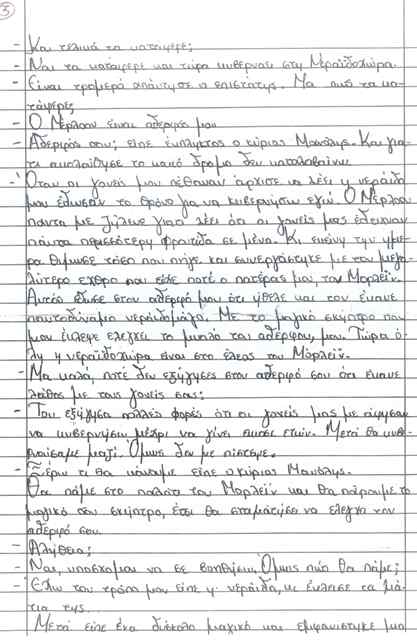 3
- Και τελικά τα κατάφερε;
- Ναι τα κατάφερε και τώρα κυβερνάει στη Νεραϊδοχώρα.
- Είναι τρομερό απάντησε ο επιστάτης. Μα πως τα κα-
τάφερες
- Ο Μέρλοον είναι αδερφός μου
- Αδερφός σου; είπε έκπληκτος ο κύριος Μανώλης. Και για-
τί ακολούθησε το κακό δρόμο δεν καταλαβαίνω.
- Όταν οι γονείς μου πέθαναν άρχισε να λέει η νεράιδα
μου έδωσαν το θρόνο για να κυβερνήσω εγώ. Ο Μέρλοον
πάντα με ζήλευε γιατί λέει ότι οι γονείς μας έδειχναν
πάντα περισσότερη φροντίδα σε μένα. Κι εκείνη την ημέ-
ρα θύμωσε τόσο που πήγε και συνεργάστηκε με τον μεγα-
λύτερο εχθρό που είχε ποτέ ο πατέρας μου, τον Μορλεϊν.
Αυτός έδωσε στον αδερφό μου ότι ήθελε και τον έκανε
παντοδύναμο νεραϊδομάγο. Με το μαγικό σκήπτρο που
μου έκλεψε ελέγχει το μυαλό του αδερφού μου. Τώρα ό-
λη η νεραϊδοχώρα είναι στο έλεος του Μορλεϊν.
- Μα καλά, ποτέ δεν εξήγησες στον αδερφό σου ότι έκανε
λάθος με τους γονείς σας;
- Του εξήγησα πολλές φορές ότι οι γονείς μας με άφησαν
να κυβερνήσω μέχρι να γίνει είκοσι ετών. Μετά θα κυβε-
ρνούσαμε μαζί. Όμως δεν με πίστεψε.
- Ξέρω τι θα κάνουμε είπε ο κύριος Μανώλης.
Θα πάμε στο παλάτι του Μορλεϊν και θα πάρουμε το
μαγικό σου σκήπτρο, έτσι θα σταματήσει να ελέγχει τον
αδερφό σου.
- Αλήθεια;
- Ναι, υπόσχομαι να σε βοηθήσω. Όμως πώς θα πάμε;
- Έχω τον τρόπο μου είπε η νεράιδα, κι έκλεισε τα μά-
τια της.
Μετά είπε ένα δύσκολο μαγικό και εμφανίστηκε μια